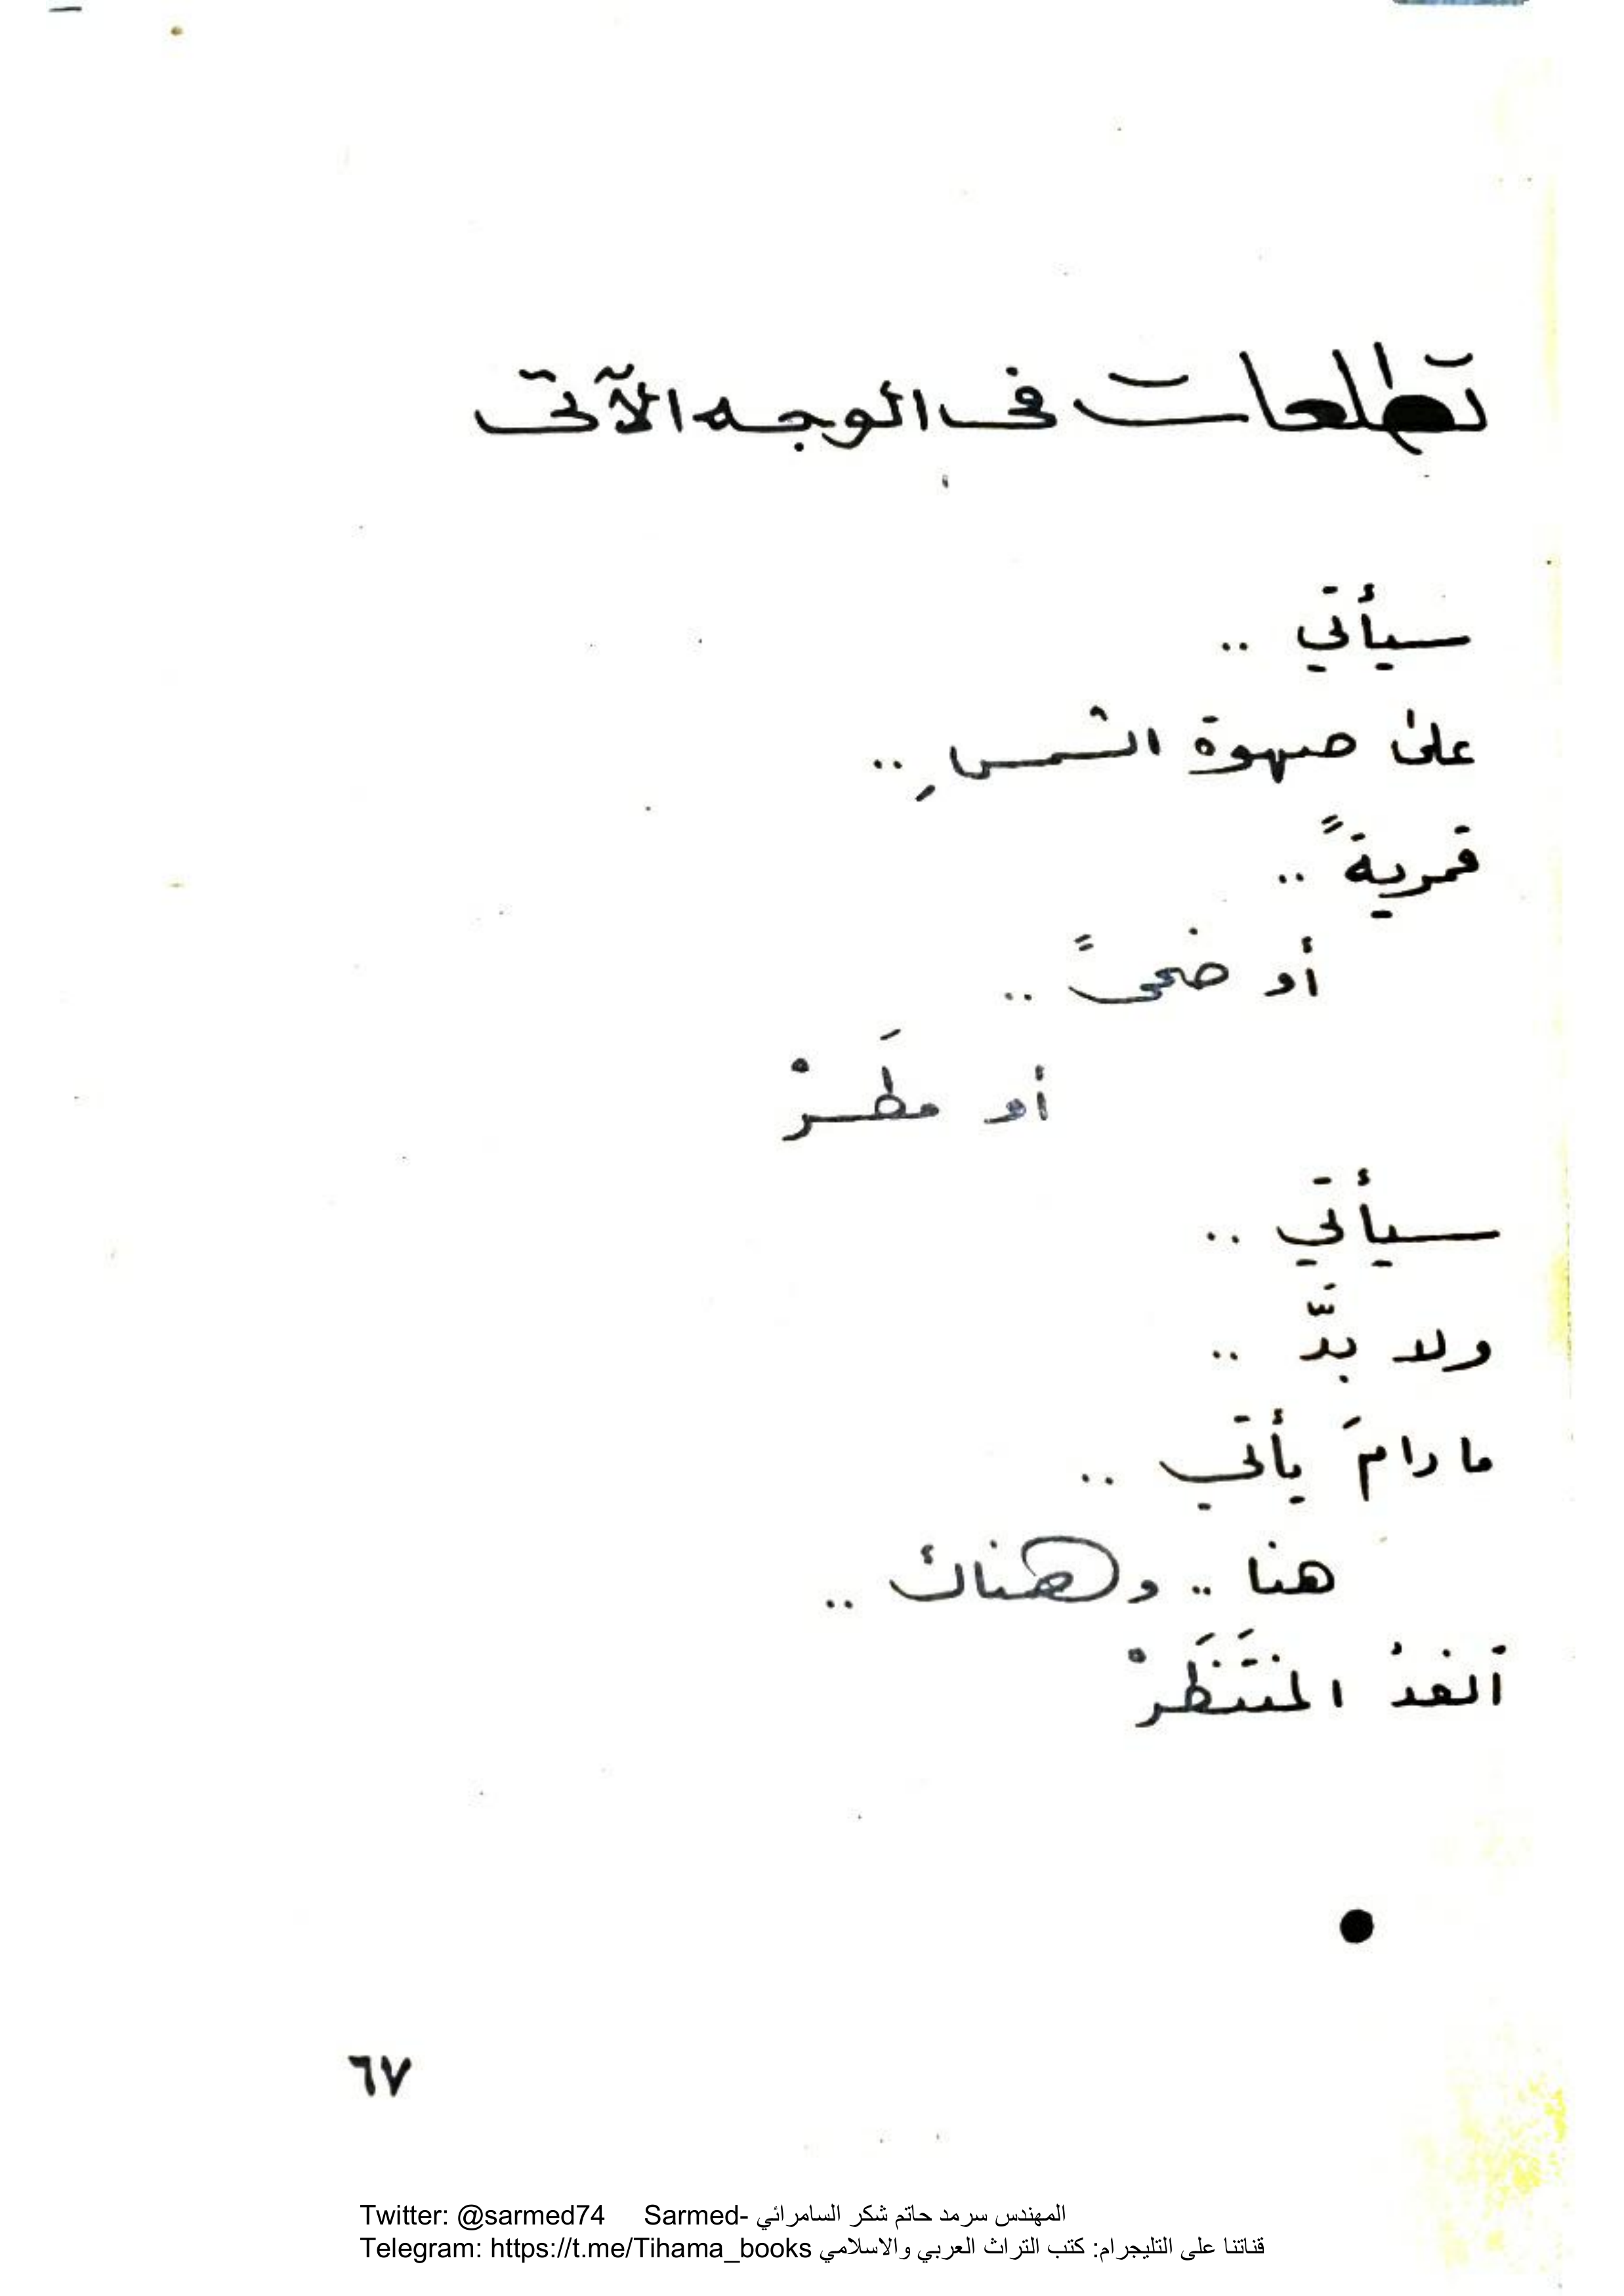 تطلعات فى الوجه الآتى
سيأتي ..
على صهوة الشمسِ ..
قمريةً ..
أو ضحىً ..
أو مطَرْ
سيأتي ..
ولا بدَّ ..
ما دامَ يأتي ..
هنا .. وهناك ..
ألغدُ المنتَظَرْ
●
٦٧
Twitter: @sarmed74 Sarmed- المهندس سرمد حاتم شكر السامرائي
Telegram: https://t.me/Tihama_books قناتنا على التليجرام: كتب التراث العربي والاسلامي